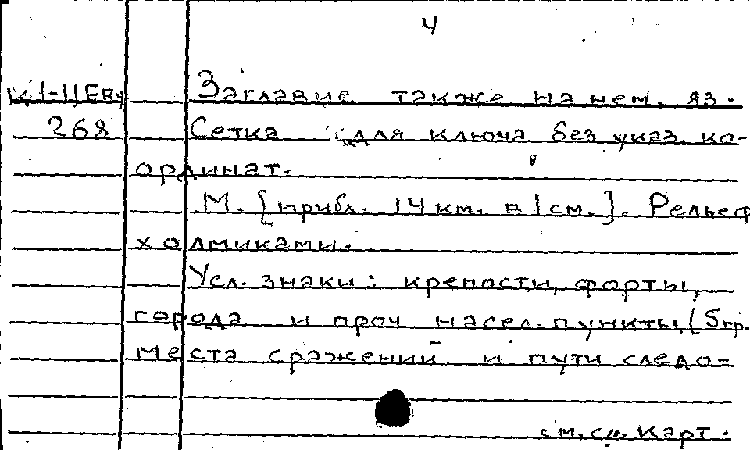 4
К 1-11Евч Заглавие также на нем. яз.
268 Сетка для ключа без указ. ко-
ординат.
М. [прибл. 14 км. в 1 см.]. Рельеф
холмиками.
Усл. знаки: крепости, форты,
города и проч. насел. пункты, (5 гр.
места сражений и пути следо-
см. сл. карт.